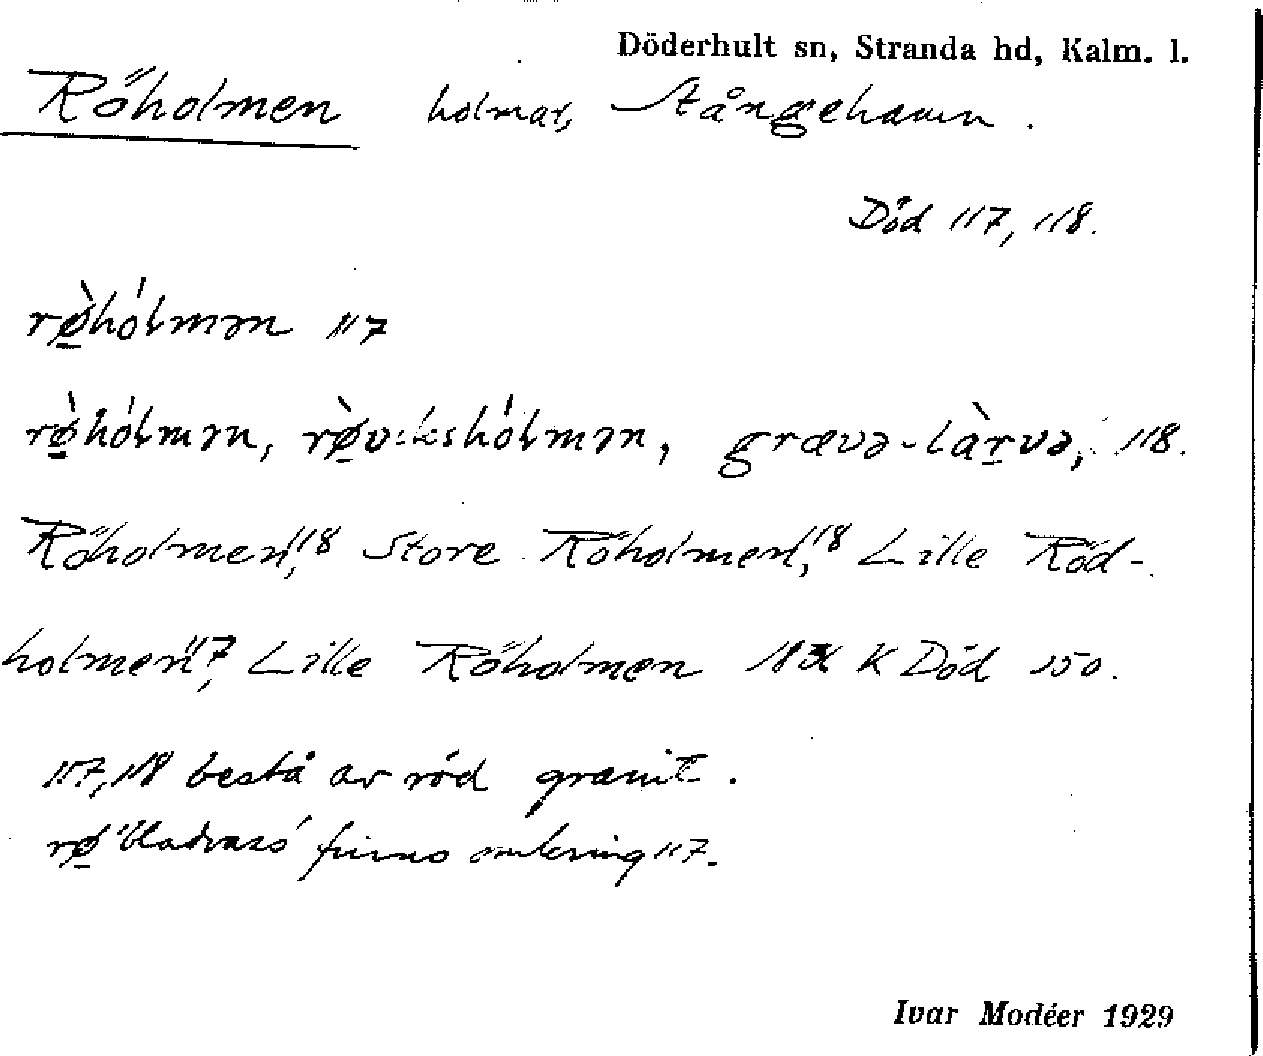 Döderhult sn, Stranda hd, Kalm. l.
Röholmen holmar, Stångehamn.
Död 117, 118.
rø̱̀hólmən 117
rø̱̀hólmən, rø̱̀v.ikshólmən, grævə-làrvə, 118.
Röholmen,¹¹⁸ Store Röholmen,¹¹⁸ Lille Röd-
holmen,¹¹⁷ Lille Röholmen K Död 150.
117, 118 bestå av röd granit.
rø̱ finns omkring 117.
Ivar Modéer 1929